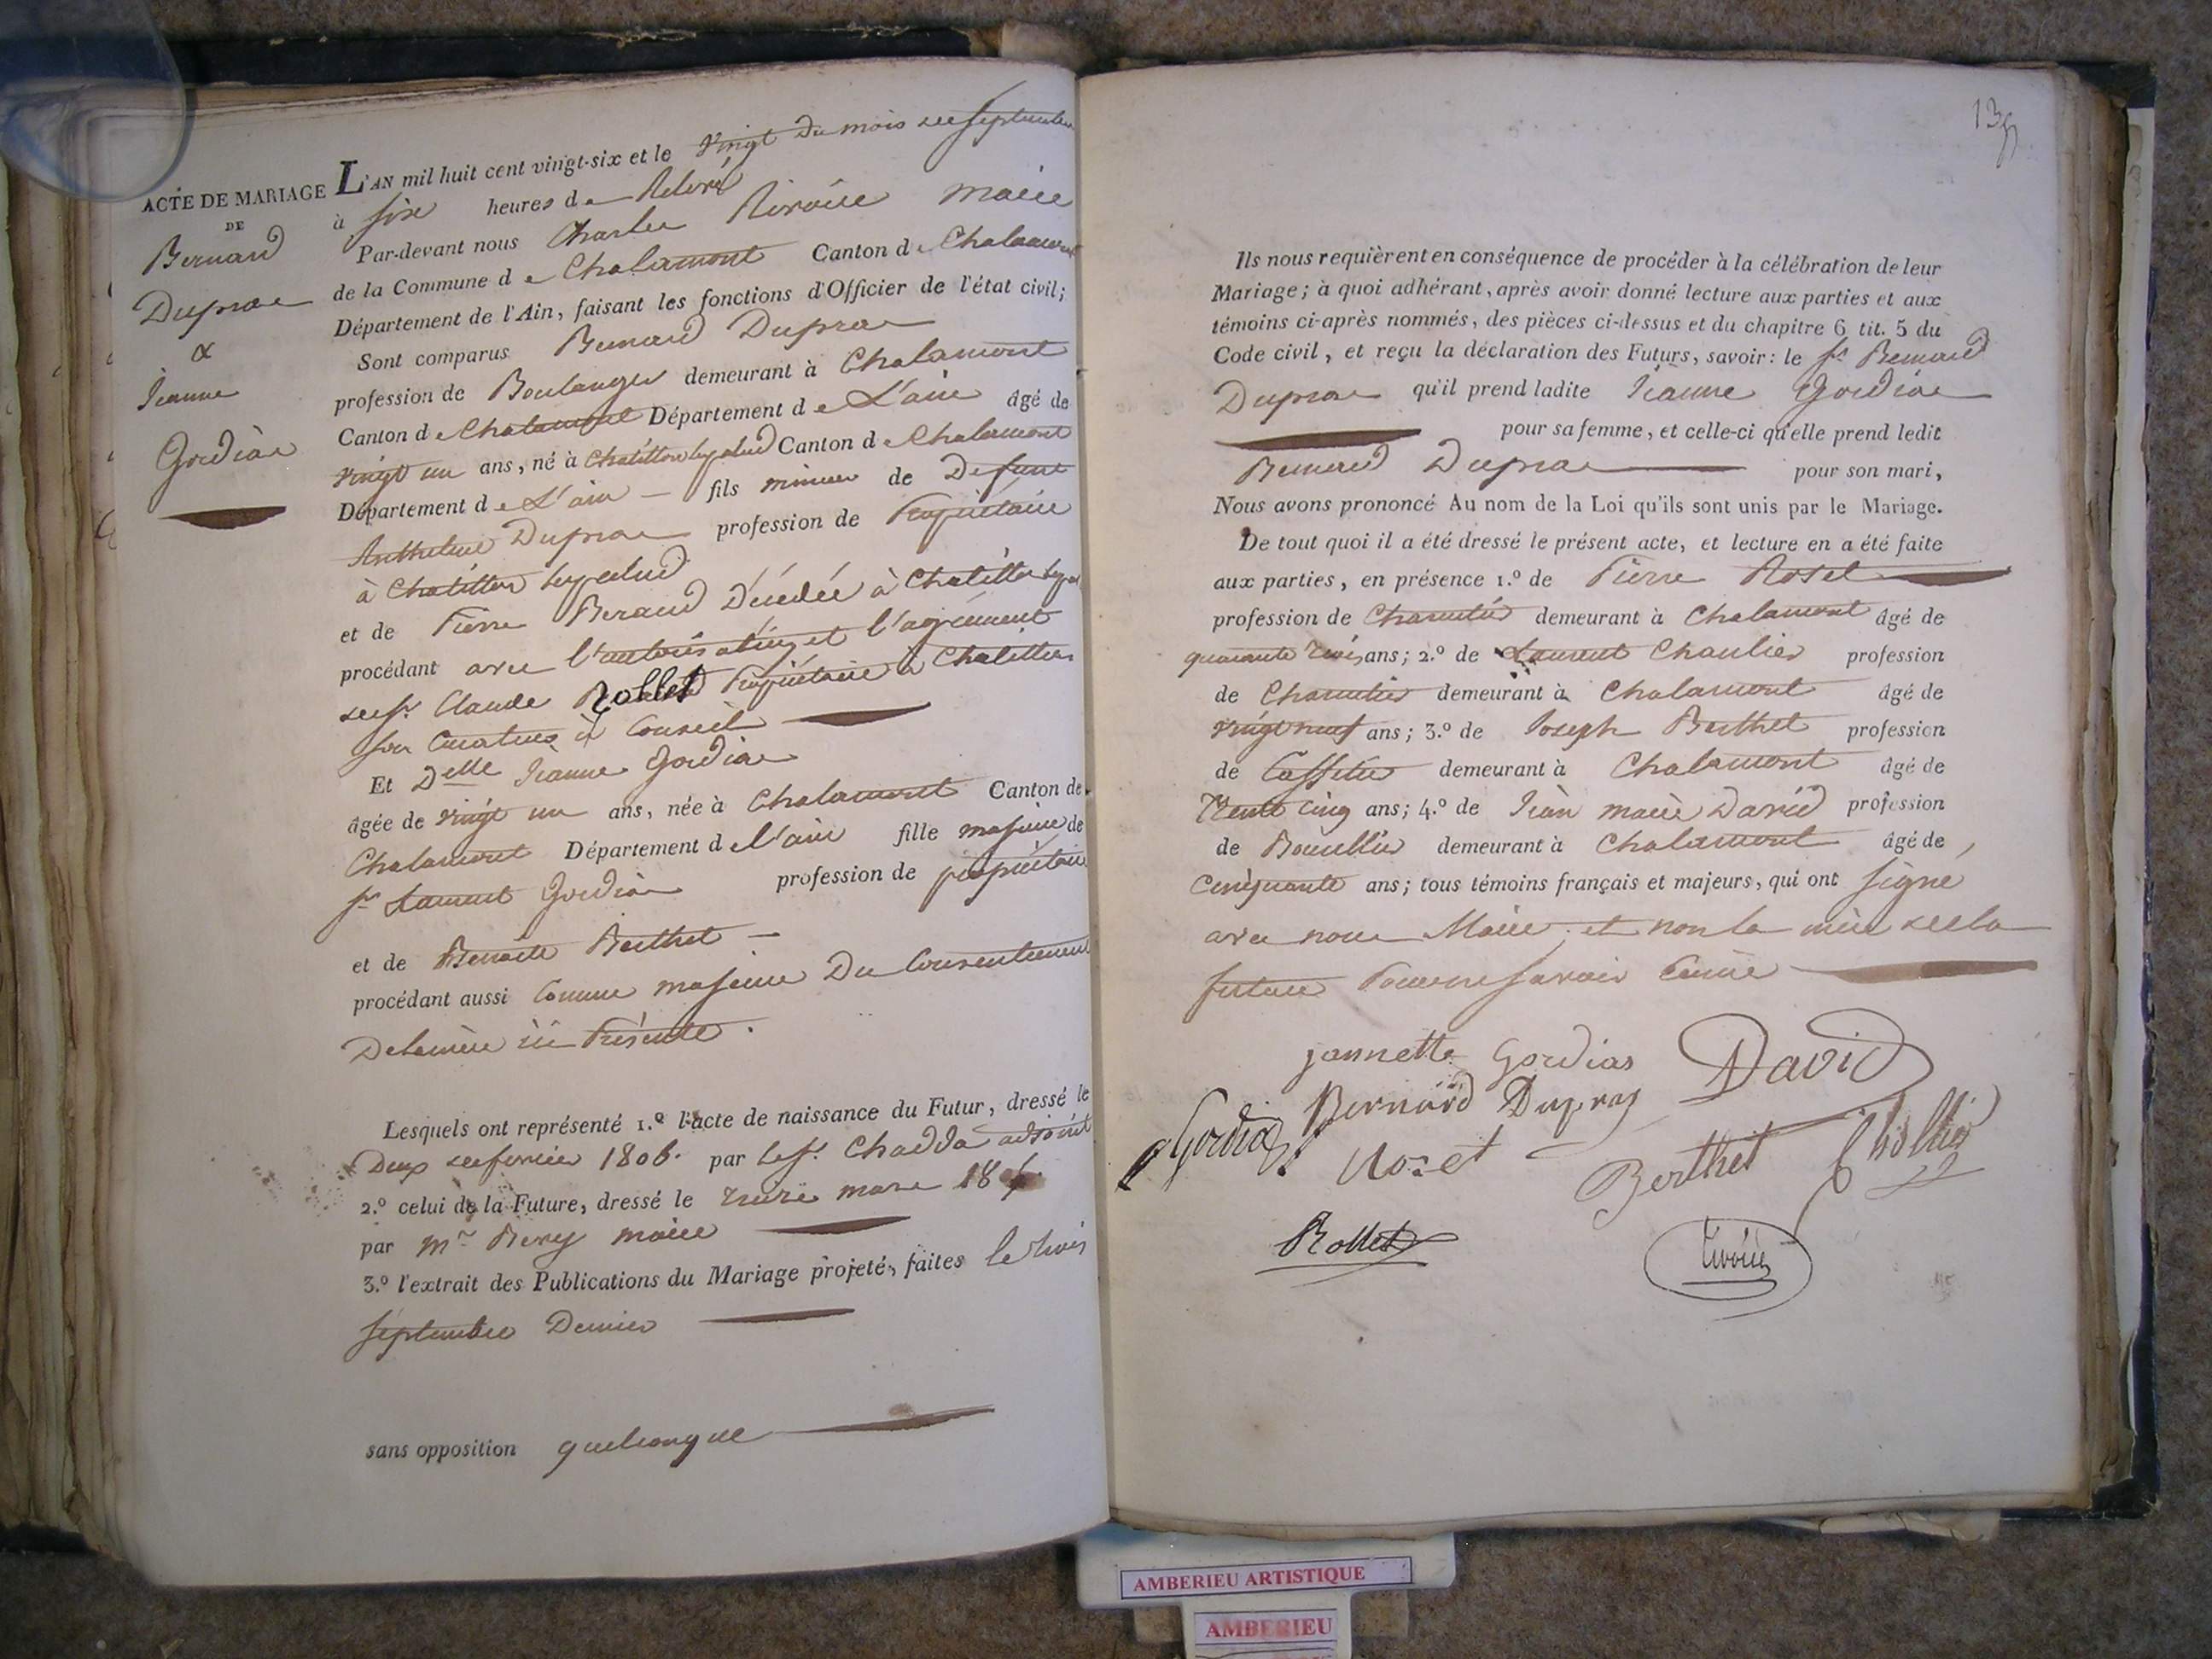 ACTE DE MARIAGE
DE
Bernard
Dupras
&
Jeanne
Gordias
L'AN mil huit cent vingt-six et le vingt du mois de septembre
à six heures de Relevé
Par-devant nous Charles Rivoire maire
de la Commune de Chalamont Canton de Chalamont
Département de l'Ain, faisant les fonctions d'Officier de l'état civil;
Sont comparus Bernard Dupras
profession de Boulanger demeurant à Chalamont
Canton de Chalamont Département de L'ain âgé de
vingt un ans, né à Chatillon lapalud Canton de Chalamont
Département de L'ain fils mineur de Defunt
Anthelme Dupras profession de Propriétaire
à Chatillon lapalud
et de Pierre Beraud Décédée à Chatillon
procédant avec l'autorisation et l'agrément
de sr. Claude Rollet Propriétaire à Chatillon
son Curateur Conseil
Et Delle Jeanne Gordias
âgée de vingt un ans, née à Chalamont Canton de
Chalamont Département de l'ain fille majeure de
sr Laurent Gordias profession de propriétaire
et de Benoite Berthet
procédant aussi Comme majeure Du Consentement
De la mère ici Présente.
Lesquels ont représenté 1.º l'acte de naissance du Futur, dressé le
Deux fevrier 1806. par le sr. Chadda adjoint
2.º celui de la Future, dressé le mars 18
par Mr Rery maire
3.º l'extrait des Publications du Mariage projeté, faites le trois
septembre Dernier
sans opposition quelconque
Ils nous requièrent en conséquence de procéder à la célébration de leur
Mariage; à quoi adhérant, après avoir donné lecture aux parties et aux
témoins ci-après nommés, des pièces ci-dessus et du chapitre 6 tit. 5 du
Code civil, et reçu la déclaration des Futurs, savoir: le sr. Bernard
Dupras qu'il prend ladite Jeanne Gordias
pour sa femme, et celle-ci qu'elle prend ledit
Bernard Dupras pour son mari,
Nous avons prononcé Au nom de la Loi qu'ils sont unis par le Mariage.
De tout quoi il a été dressé le présent acte, et lecture en a été faite
aux parties, en présence 1.º de Pierre Roset
profession de Charcutier demeurant à Chalamont âgé de
quarante trois ans; 2.º de Laurent Chaulier profession
de Charcutier demeurant à Chalamont âgé de
vingt neuf ans; 3.º de Joseph Berthet profession
de Caffetier demeurant à Chalamont âgé de
Trente cinq ans; 4.º de Jean marie David profession
de Bourellier demeurant à Chalamont âgé de
Cinquante ans; tous témoins français et majeurs, qui ont signé
avec nous Maire et non la mère de la
future Pour ne savoir
jannette Gordias David
Bernard Dupras
Gordias Rozet Berthet
Rollet Rivoire
AMBERIEU ARTISTIQUE
AMBERIEU